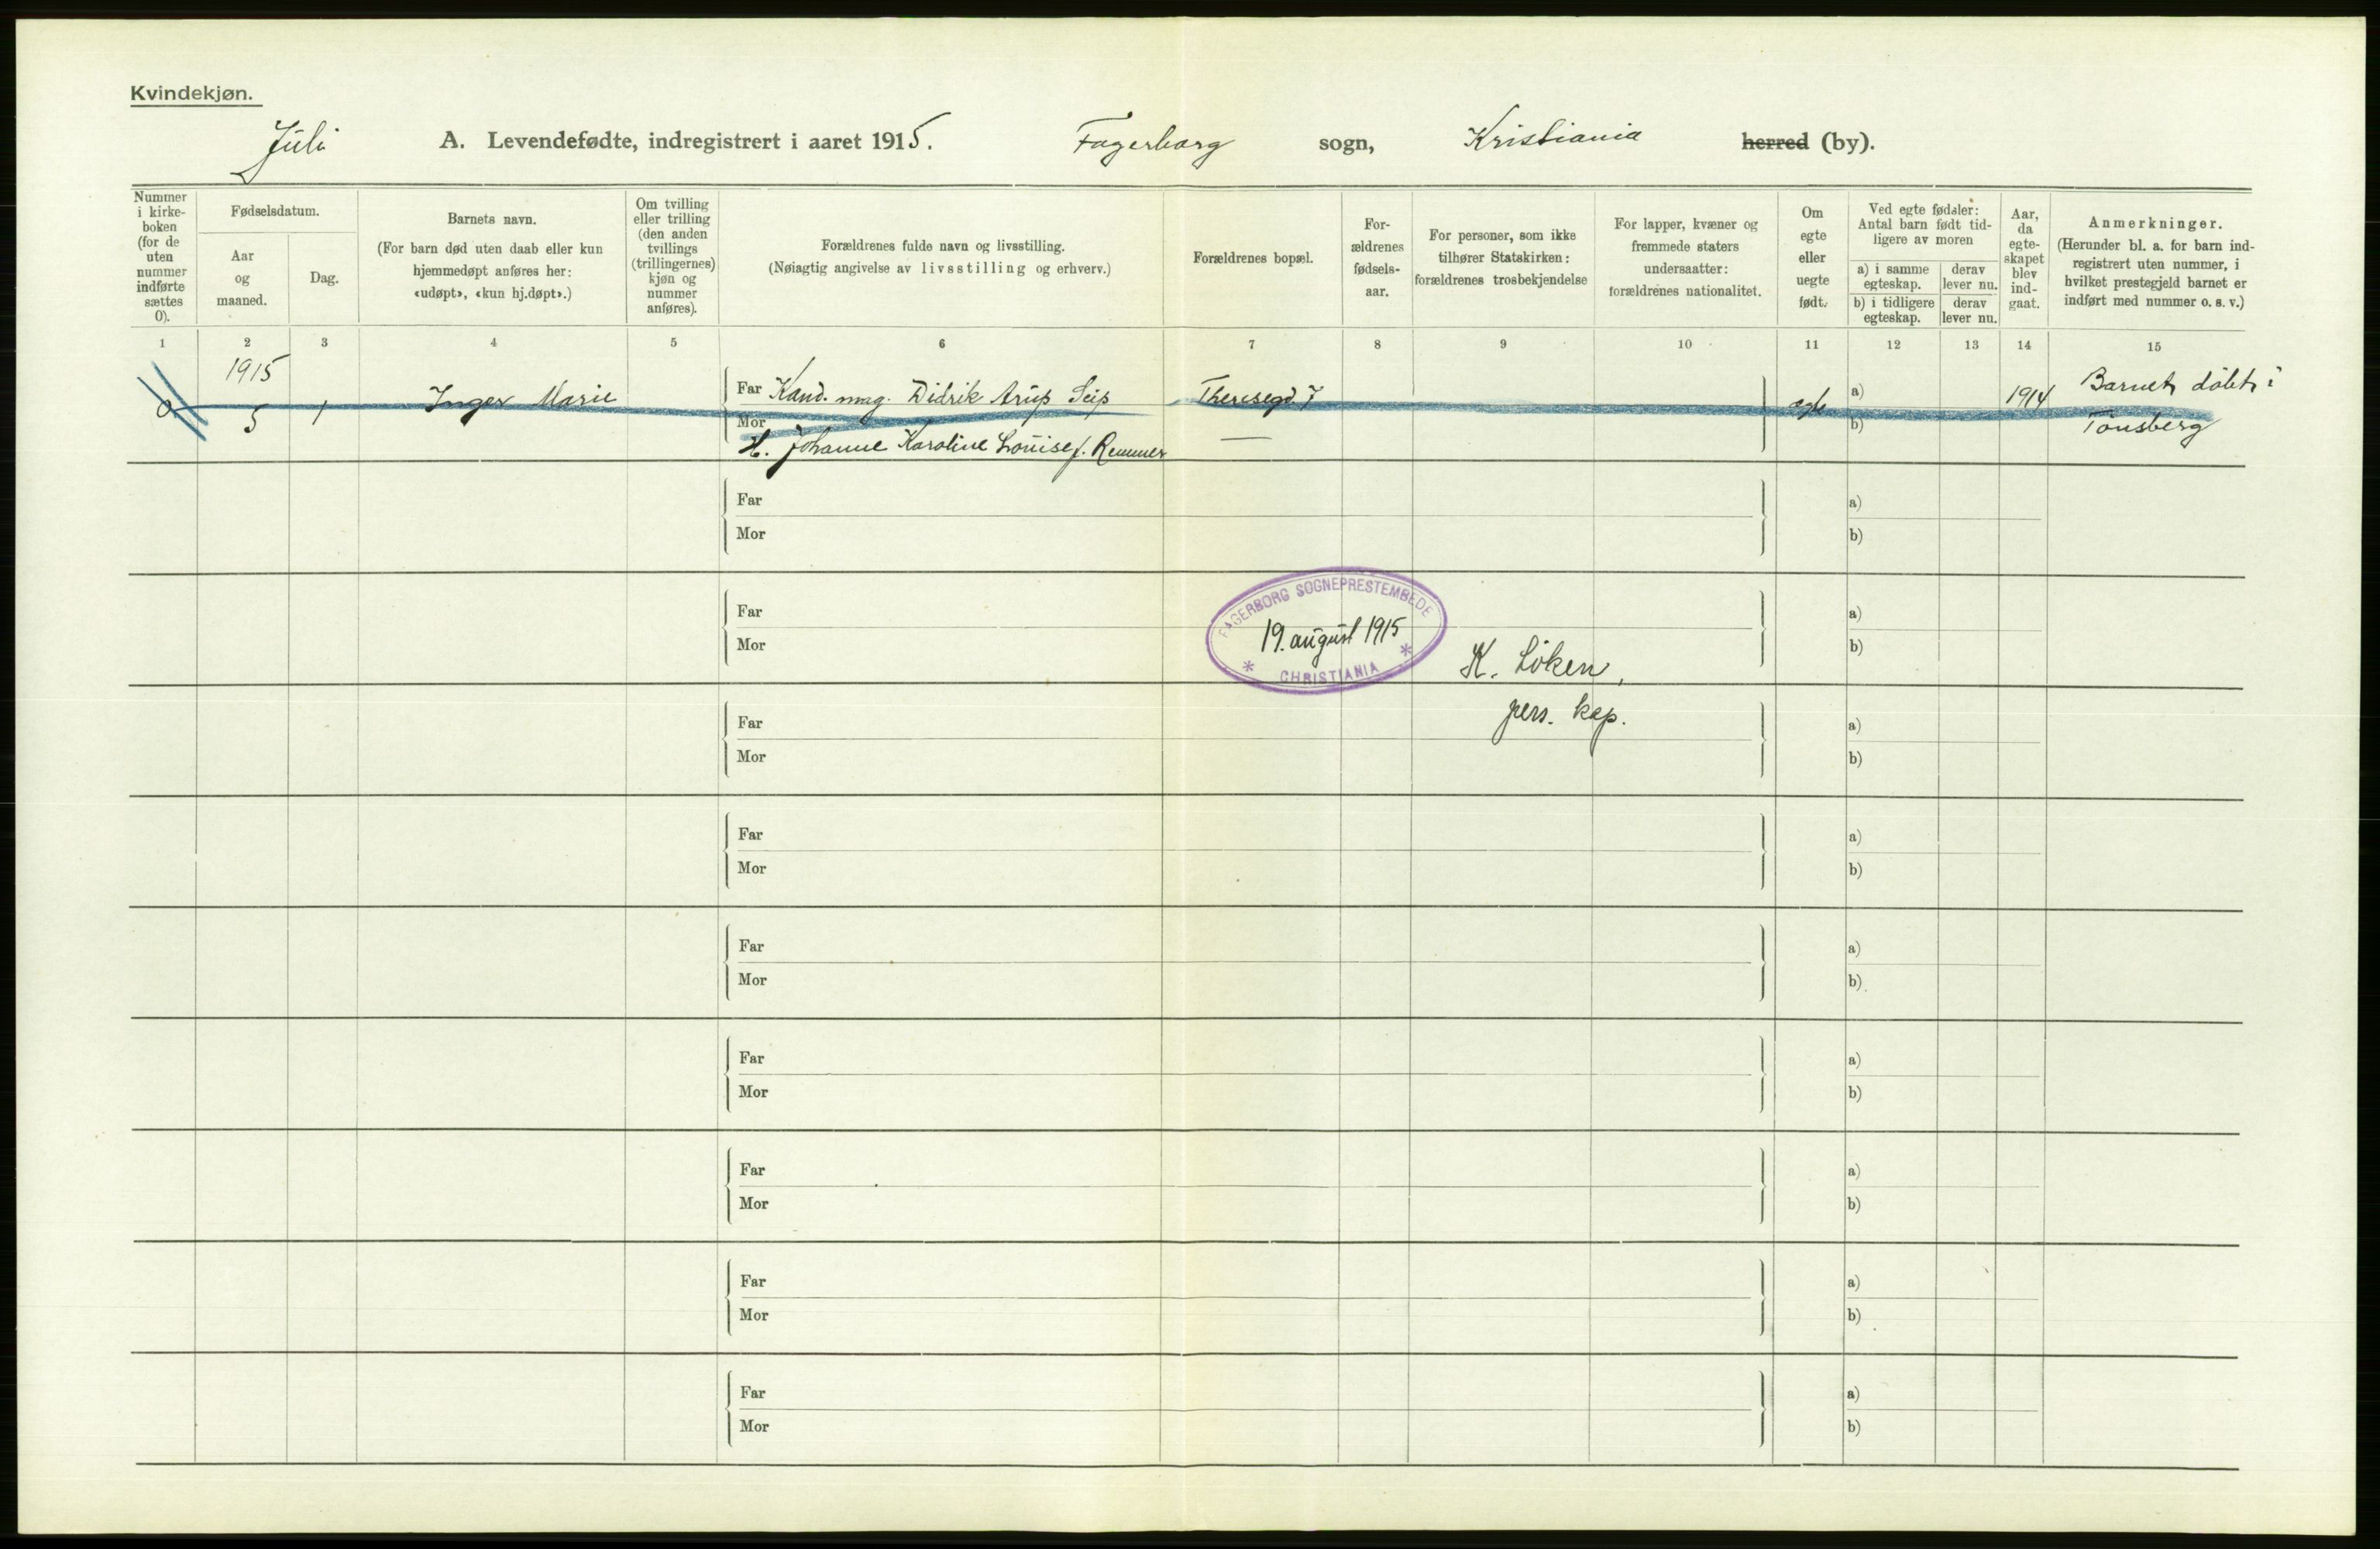 Kvindekjøn.
Juli A. Levendefødte, indregistrert i aaret 1915. Fagerborg sogn, Kristiania herred (by).
Nummer i kirke-boken (for de uten nummer indførte sættes 0).
Fødselsdatum.
Aar og maaned.
Dag.
Barnets navn.
(For barn død uten daab eller kun hjemmedøpt anføres her: «udøpt», «kun hj.døpt».)
Om tvilling eller trilling (den anden tvillings (trillingernes) kjøn og nummer anføres).
Forældrenes fulde navn og livsstilling.
(Nøiagtig angivelse av livsstilling og erhverv.)
Forældrenes bopæl.
For-ældrenes fødsels-aar.
For personer, som ikke tilhører Statskirken: forældrenes trosbekjendelse
For lapper, kvæner og fremmede staters undersaatter: forældrenes nationalitet.
Om egte eller uegte født.
Ved egte fødsler: Antal barn født tid-ligere av moren
a) i samme egteskap.
derav lever nu.
b) i tidligere egteskap.
derav lever nu.
Aar, da egte-skapet blev ind-gaat.
Anmerkninger.
(Herunder bl. a. for barn ind-registrert uten nummer, i hvilket prestegjeld barnet er indført med nummer o. s. v.)
1 2 3 4 5 6 7 8 9 10 11 12 13 14 15
1915
0 5 1 Inger Marie Far Kand. mag. Didrik Arup Seip Theresegd 7 egte a) 1914 Barnet døbt i
Mor b) Tønsberg
H. Johanne Karoline Louise f. Remmer —
Far a)
Mor b)
Far a)
Mor b)
FAGERBORG SOGNEPRESTEMBEDE
19. august 1915
* CHRISTIANIA *
K. Løken,
pers. kap.
Far a)
Mor b)
Far a)
Mor b)
Far a)
Mor b)
Far a)
Mor b)
Far a)
Mor b)
Far a)
Mor b)
Far a)
Mor b)